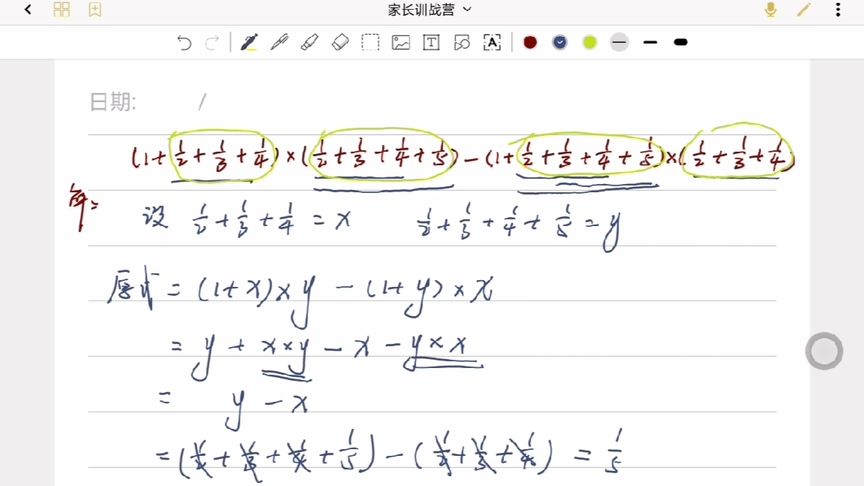 家长训战营
日期: /
(1+1/2+1/3+1/4)×(1/2+1/3+1/4+1/5)-(1+1/2+1/3+1/4+1/5)×(1/2+1/3+1/4)
解:
设 1/2+1/3+1/4=x 1/2+1/3+1/4+1/5=y
原式=(1+x)×y-(1+y)×x
=y+x×y-x-y×x
= y-x
=(1/2+1/3+1/4+1/5)-(1/2+1/3+1/4)=1/5